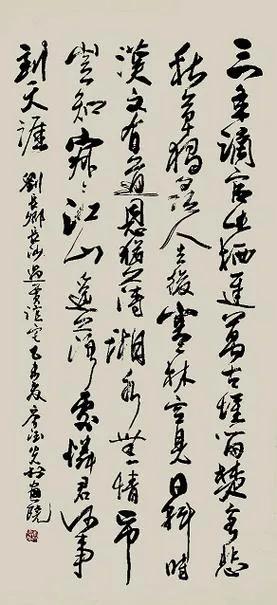 三年謫宦此栖遲萬古惟留楚客悲
秋草獨尋人去後寒林空見日斜時
漢文有道恩猶薄湘水無情吊
豈知寂々江山遙落處憐君何事
到天涯
劉長卿長沙過賈誼宅乙未夏